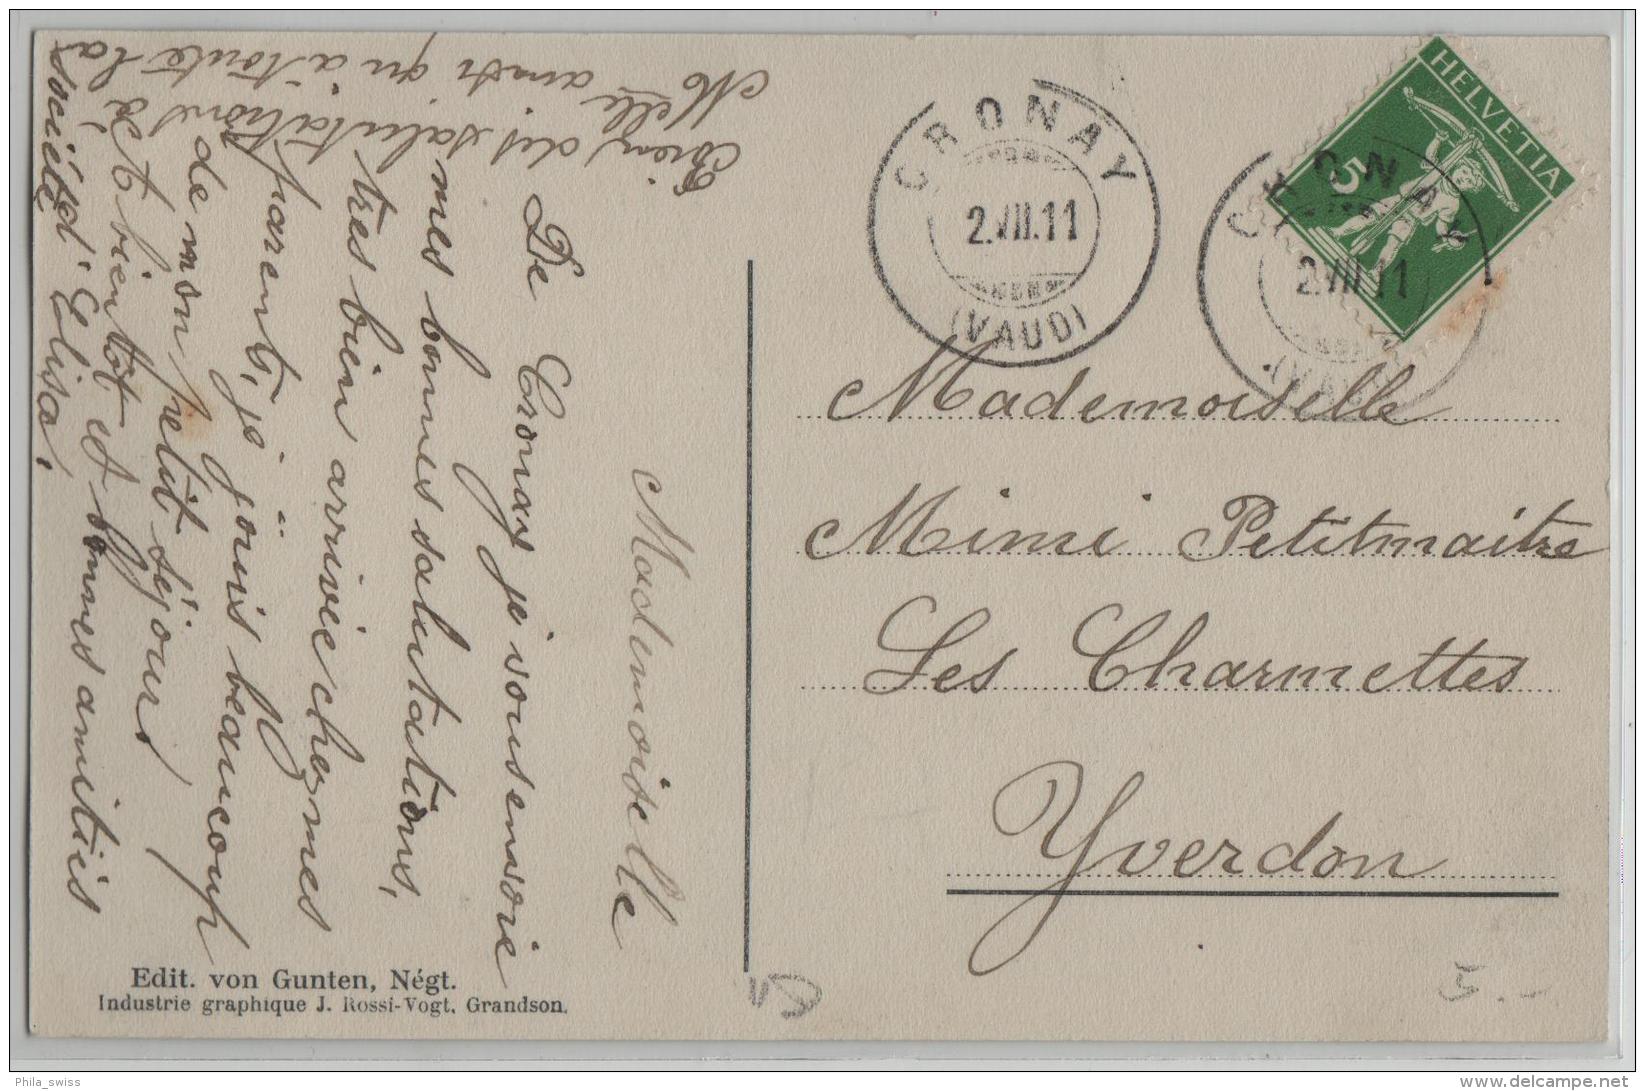 HELVETIA
5
CRONAY
2.VII.11
(VAUD)
CRONAY
2.VII.11
(VAUD)
Mademoiselle
Mimi Petitmaitre
Les Charmettes
Yverdon
Mademoiselle
De Cronay je vous envoie
mes bonnes salutations,
très bien arrivée chez mes
parents, je jouis beaucoup
de mon petit séjour,
et bientôt et bonnes amitiés
d'Elisa.
Bien des salutations à
Melle ainsi qu'à toute la
société
Edit. von Gunten, Négt.
Industrie graphique J. Rossi-Vogt, Grandson.
5.-
Phila_swiss
delcampe.net